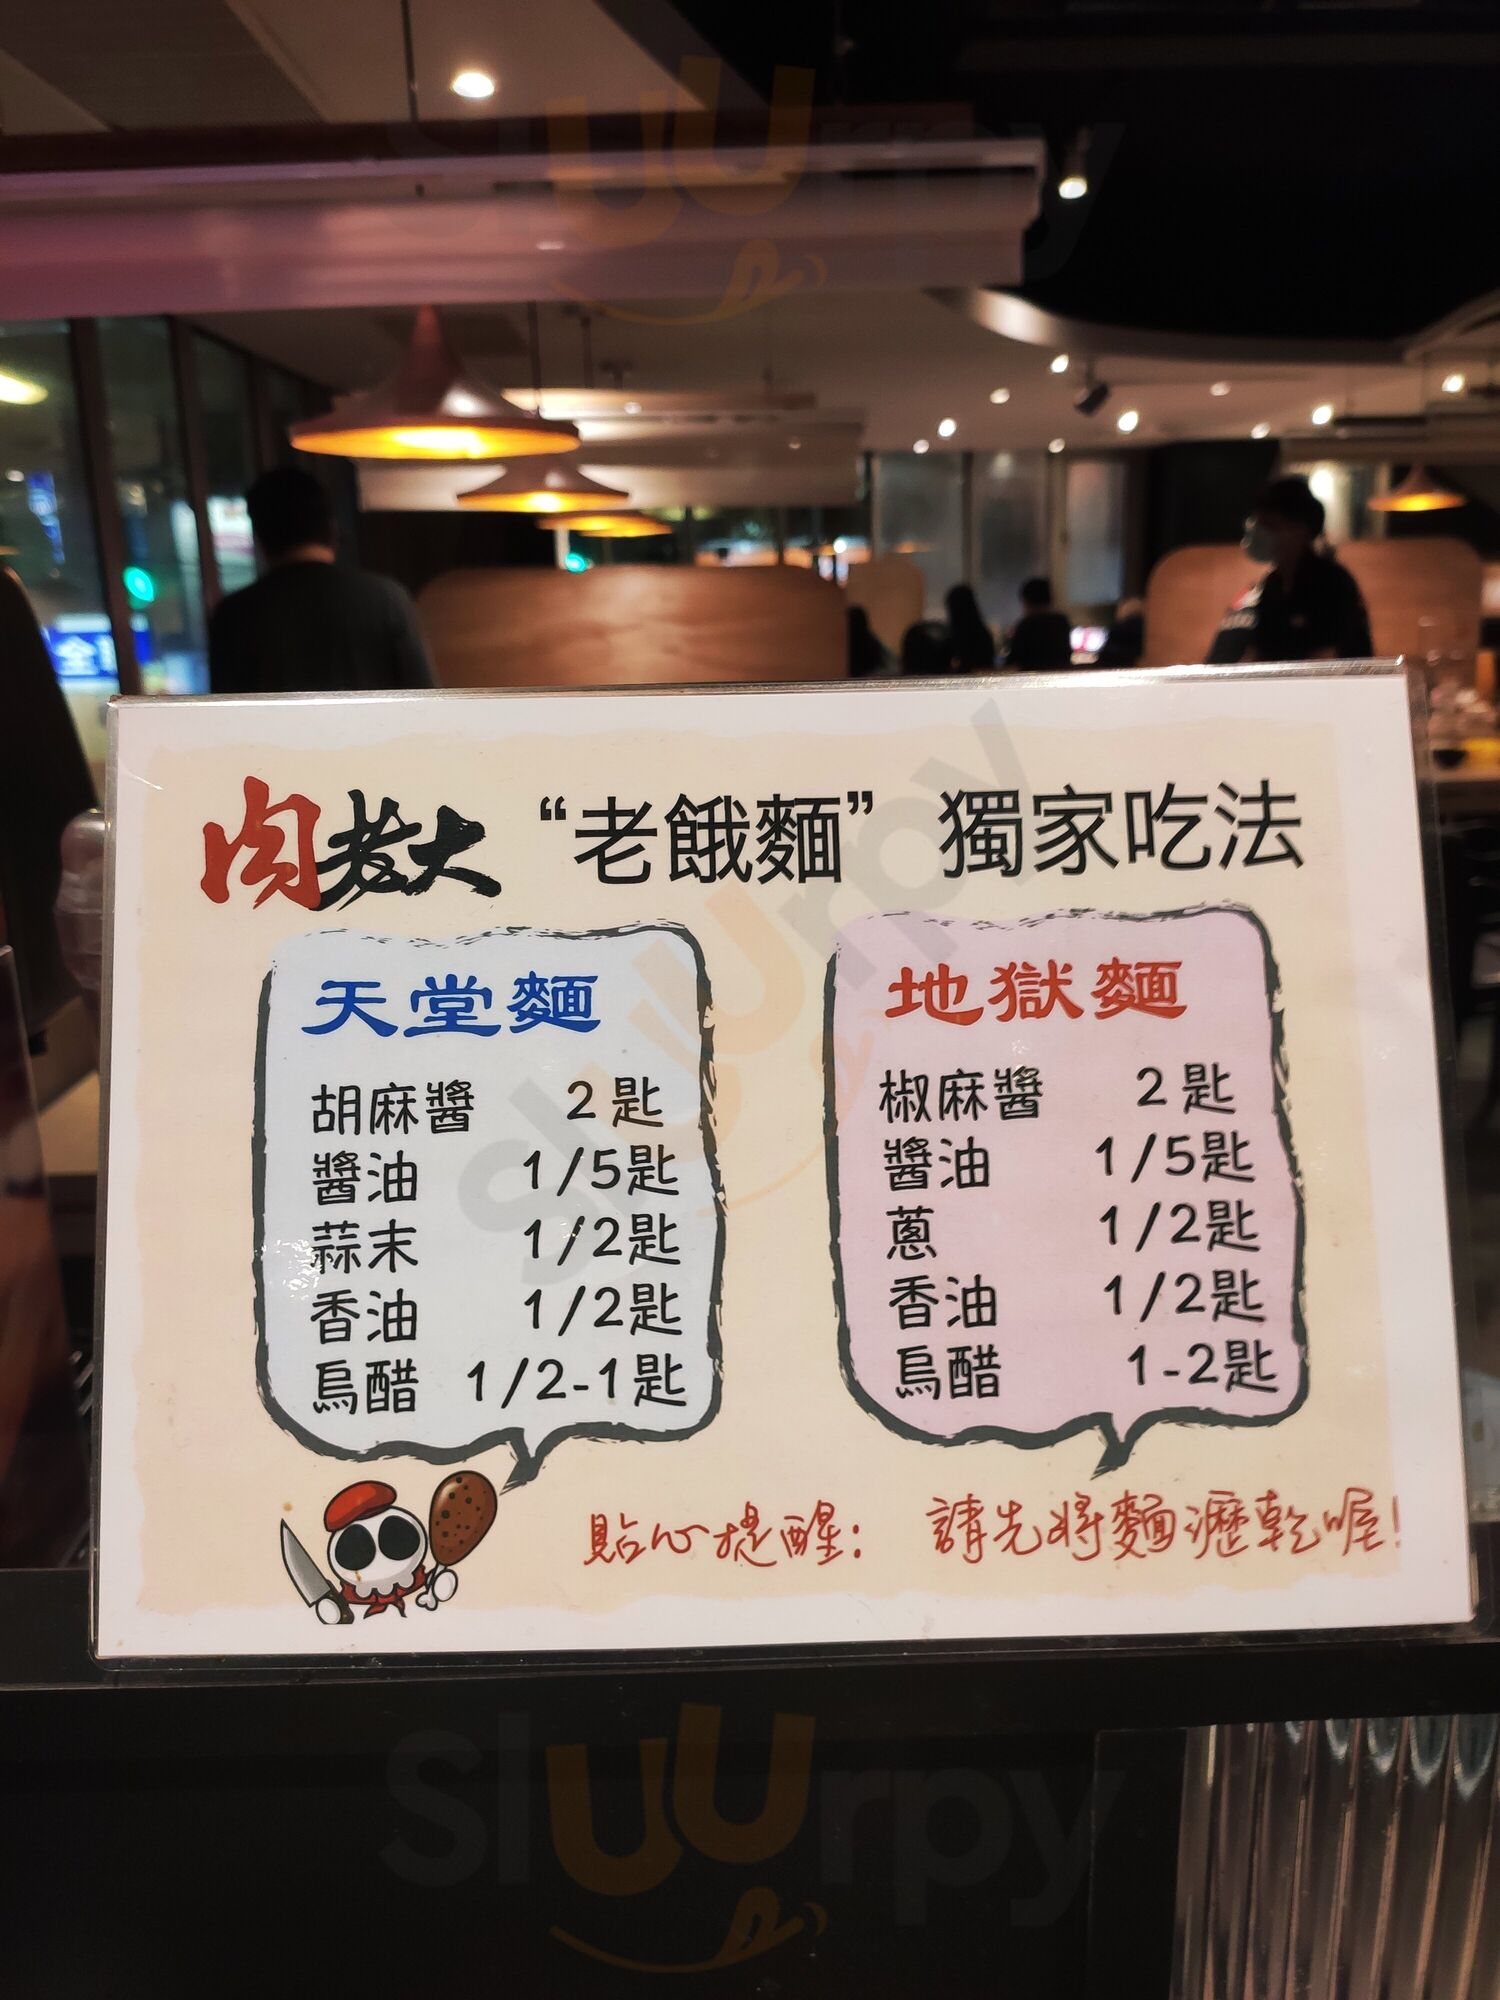 全
肉老大 “老餓麵” 獨家吃法
天堂麵
胡麻醬 2匙
醬油 1/5匙
蒜末 1/2匙
香油 1/2匙
烏醋 1/2-1匙
地獄麵
椒麻醬 2匙
醬油 1/5匙
蔥 1/2匙
香油 1/2匙
烏醋 1-2匙
貼心提醒: 請先將麵瀝乾喔!
sluurpy
sluurpy
sluurpy